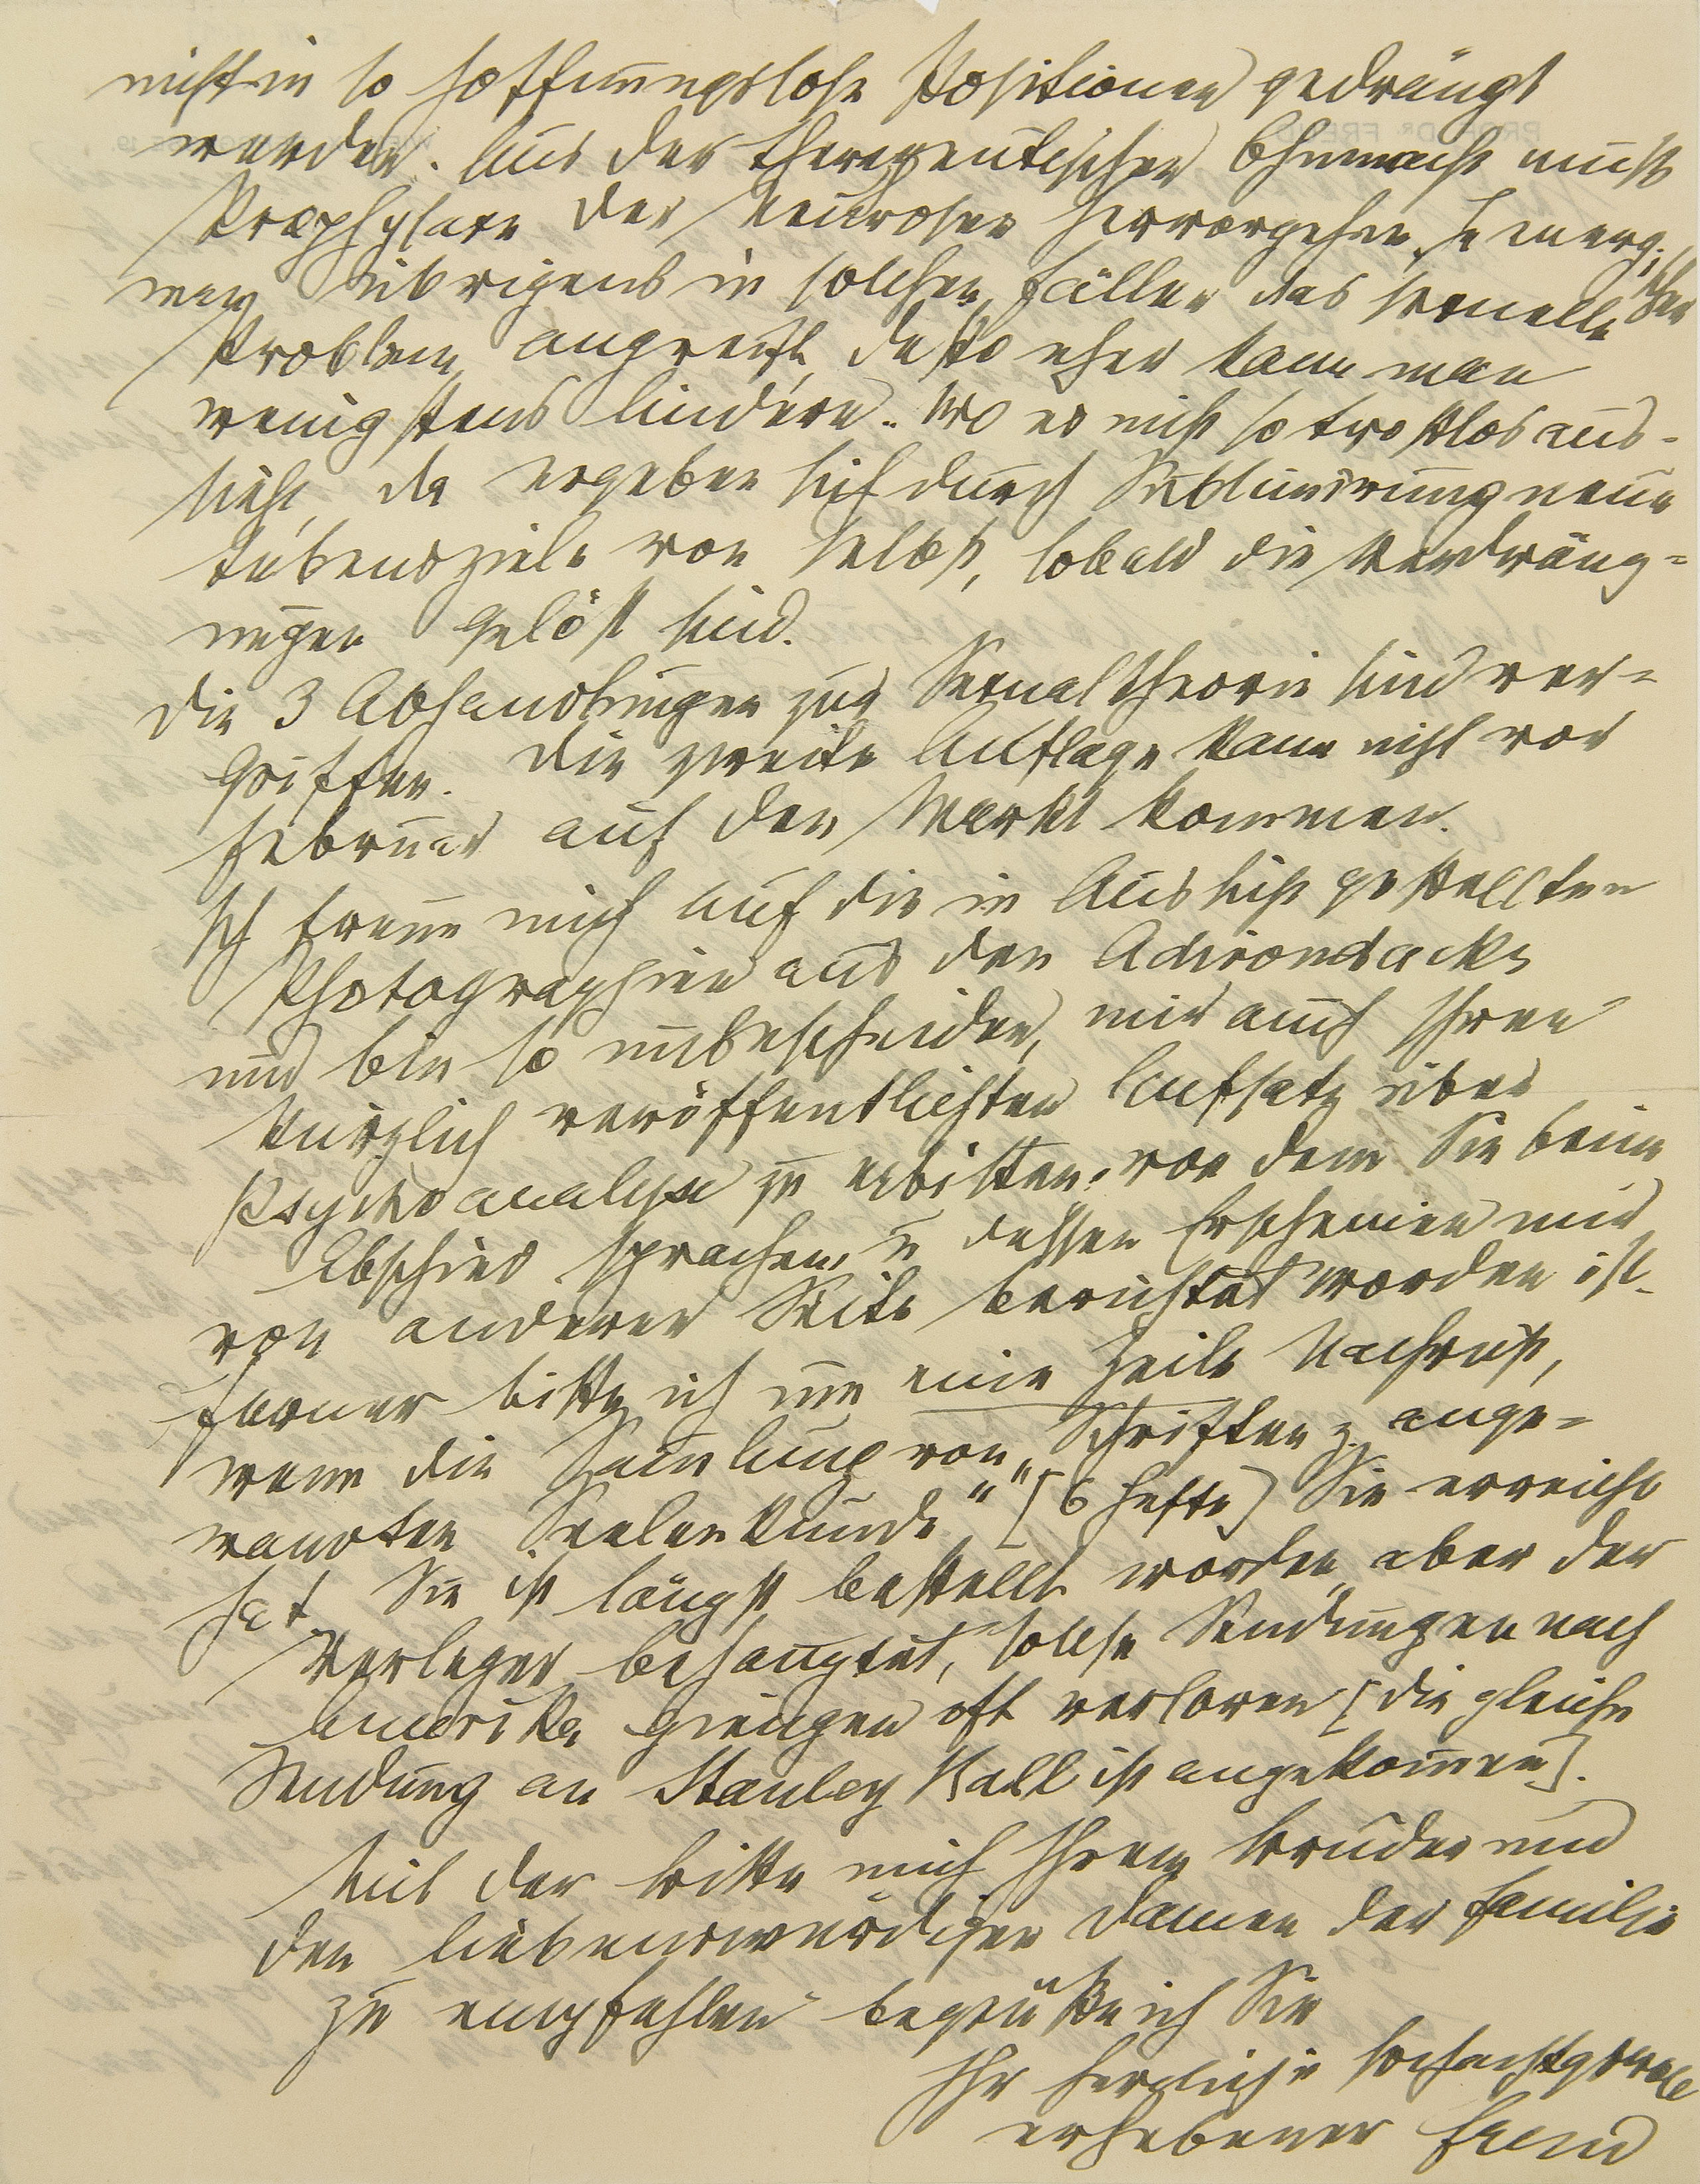 nicht in so hoffnungslose Positionen gedrängt
werden. Aus der therapeutischen Ohnmacht muß
Prophylaxe der Neurosen hervorgehen. Je energi-
scher
man übrigens in solchen Fällen das sexuelle
Problem angreift, desto eher kann man
wenigstens lindern. Wo es nicht so trostlos aus-
sieht, da ergeben sich durch Sublimirung neue
Lebensziele von selbst, sobald die Verdräng-
ungen gelöst sind.
Die 3 Abhandlungen zur Sexualtheorie sind ver-
griffen. Die zweite Auflage kann nicht vor
Februar auf den Markt kommen.
Ich freue mich auf die in Aussicht gestellten
Photographien aus den Adirondacks
und bin so unbescheiden, mir auch Ihren
kürzlich veröffentlichten Aufsatz über
Psychoanalyse zu erbitten, von dem Sie beim
Abschied sprachen, u dessen Erscheinen mir
von anderer Seite berichtet worden ist.
Ferner bitte ich um eine Zeile Nachricht,
wenn die Sam̄lung von „Schriften z. ange-
wandten Seelenkunde" (6 Hefte) Sie erreicht
hat. Sie ist längst bestellt worden, aber der
Verleger behauptet, solche Sendungen nach
Amerika giengen oft verloren [die gleiche
Sendung an Stanley Hall ist angekom̄en].
Mit der Bitte mich Ihrem Bruder und
den liebenswürdigen Damen der Familie
zu empfehlen begrüße ich Sie
Ihr herzlich
ergebener Freud